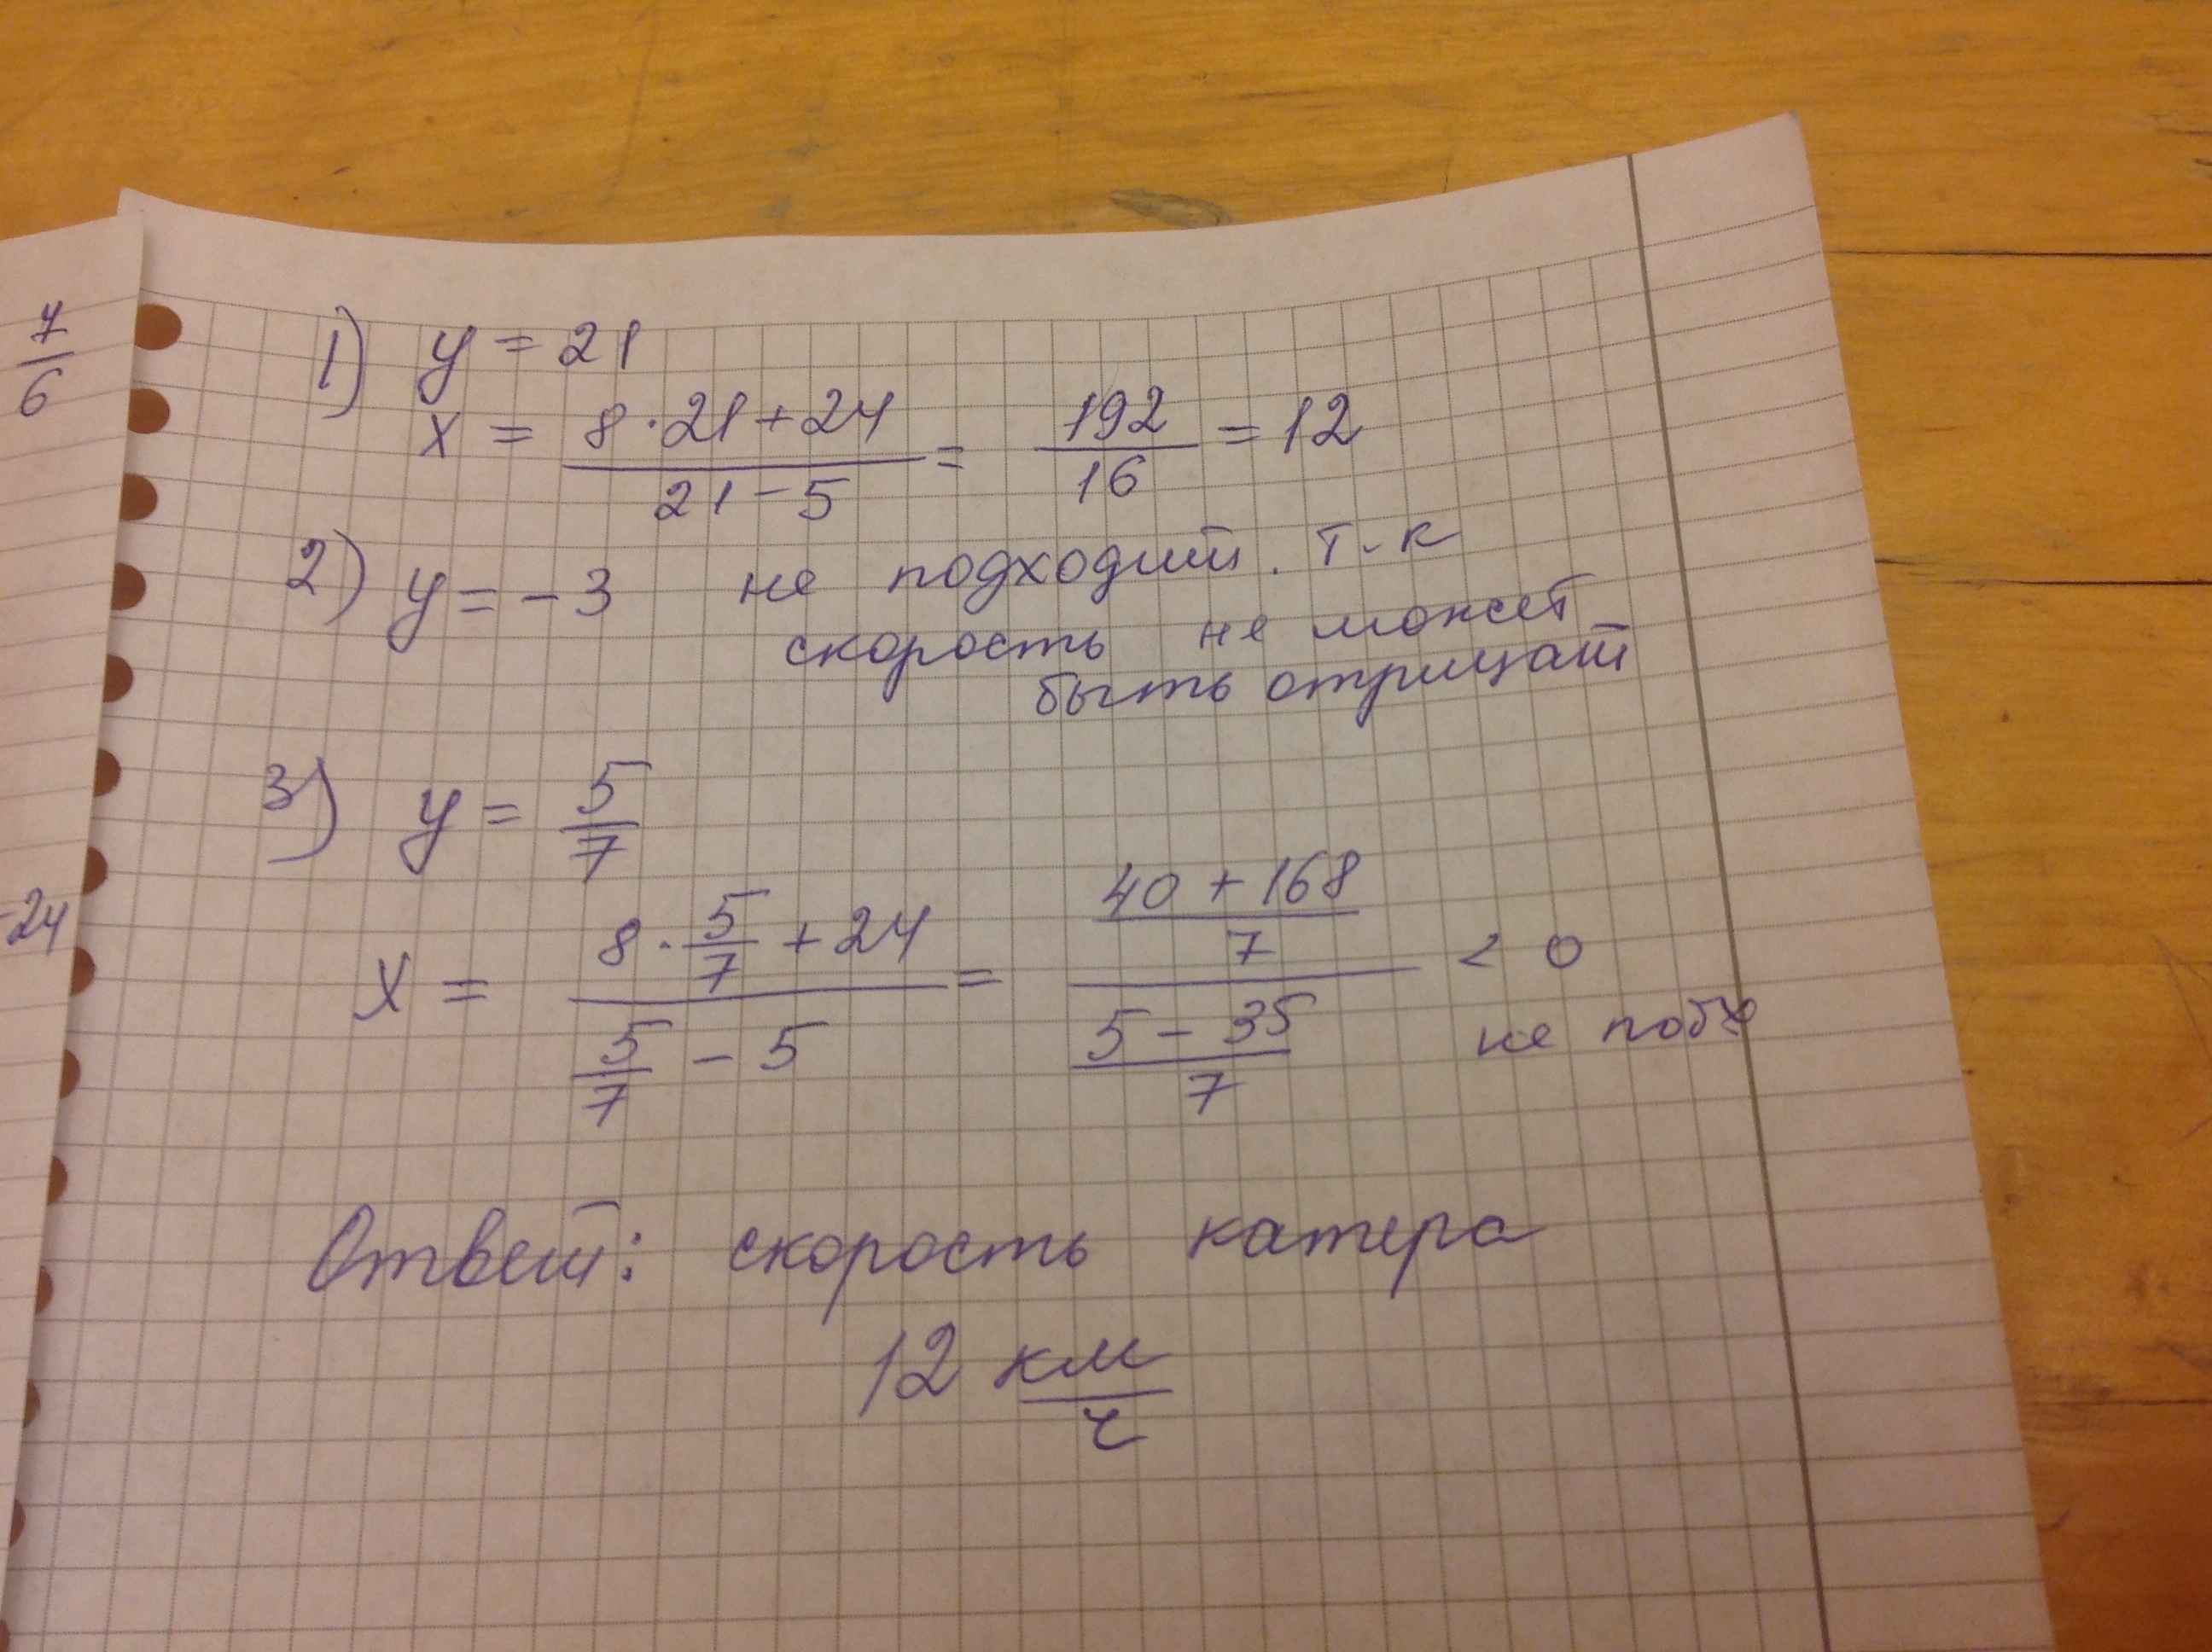 7/6
-24
1) y = 21
x = (8·21+24)/(21-5) = 192/16 = 12
2) y = -3 не подходит. т-к
скорость не может
быть отрицат
3) y = 5/7
x = (8·5/7 + 24)/(5/7 - 5) = ((40+168)/7)/((5-35)/7) < 0
не
Ответ: скорость катера
12 км/ч